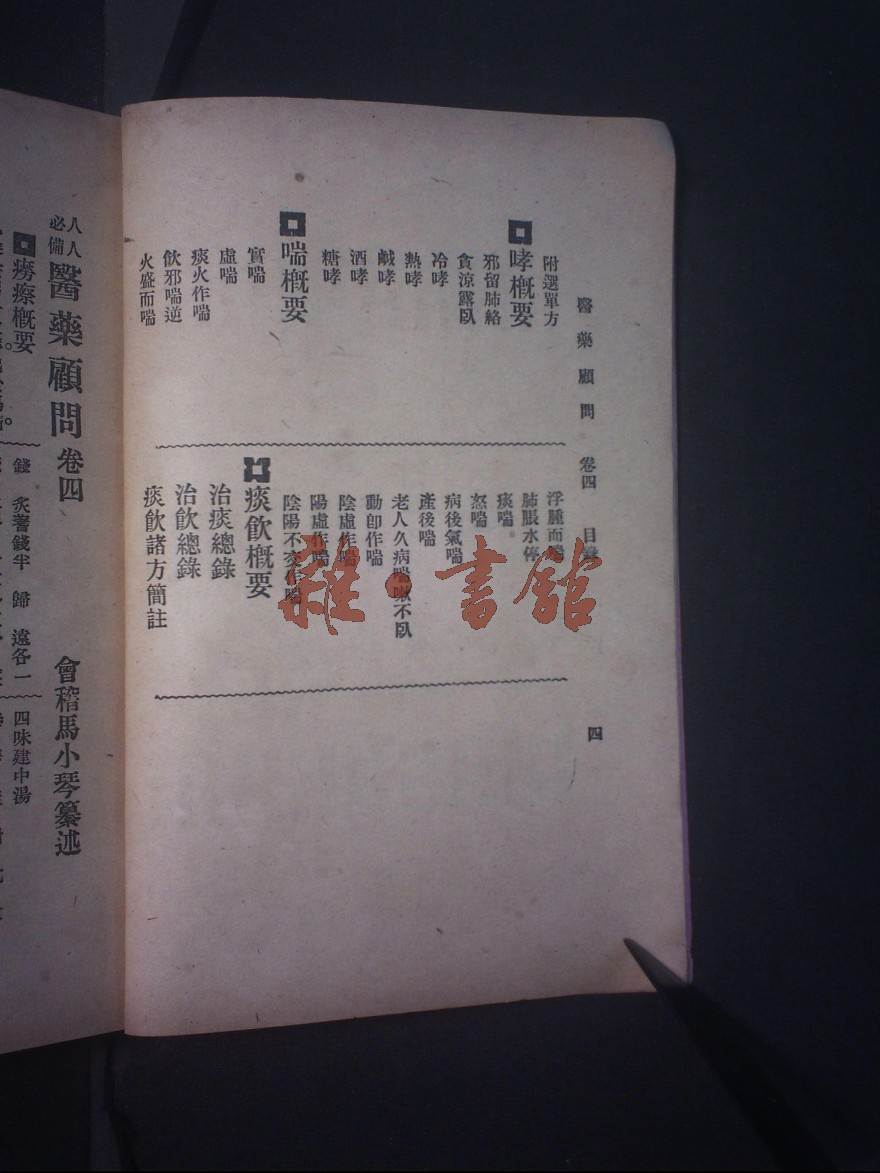 醫藥顧問 卷四 目錄 四
附選單方
哮概要
邪留肺絡
貪涼露臥
冷哮
熱哮
鹹哮
酒哮
糖哮
喘概要
實喘
虛喘
痰火作喘
飲邪喘逆
火盛而喘
浮腫而喘
肺脹水停
痰喘
怒喘
病後氣喘
產後喘
老人久病喘嗽不臥
動卽作喘
陰虛作喘
陽虛作喘
陰陽不交作喘
痰飲概要
治痰總錄
治飲總錄
痰飲諸方簡註
雜·書館
人人必備 醫藥顧問 卷四 會稽馬小琴纂述
癆瘵概要
錢 炙蓍錢半 歸 遠各一
四味建中湯